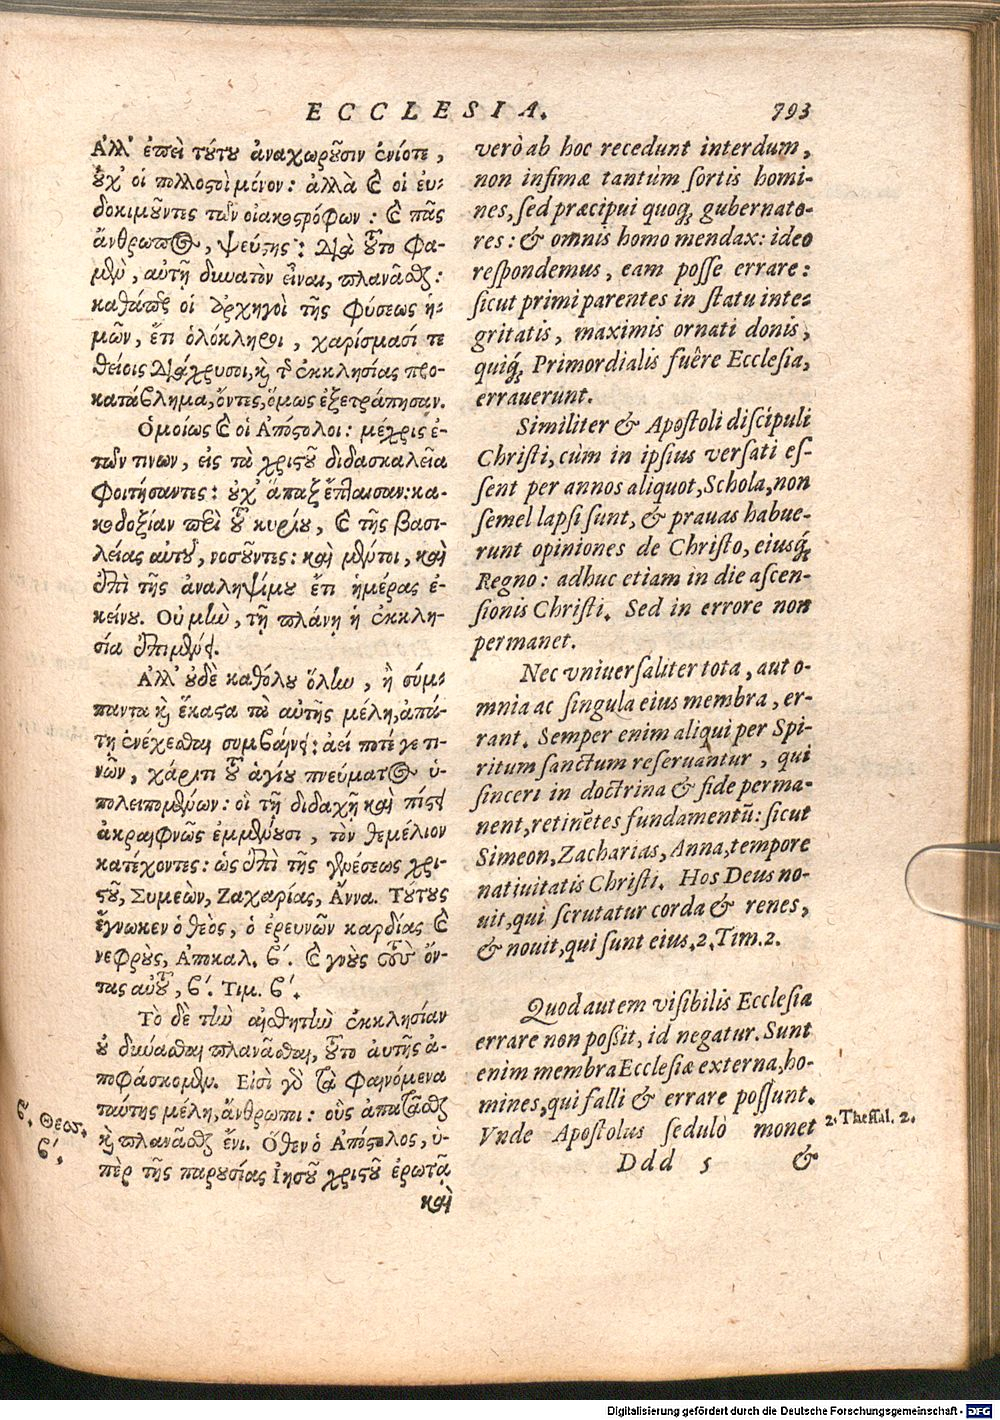 ECCLESIA. 793
Ἀλλ' ἐπεὶ τούτου ἀναχωροῦσιν ἐνίοτε,
οὐχ' οἱ πολλοστοὶ μόνον: ἀλλὰ καὶ οἱ εὐ-
δοκιμοῦντες τῶν οἰακοστρόφων: καὶ πᾶς
ἄνθρωπος, ψεύστης: διὰ τοῦτο φα-
μὲν, αὐτῇ δυνατὸν εἶναι, πλανᾶσθαι:
καθάπερ οἱ ἀρχηγοὶ τῆς φύσεως ἡ-
μῶν, ἔτι ὁλόκληροι, χαρίσμασί τε
θείοις διάχρυσοι, καὶ τῆς ἐκκλησίας προ-
κατάβλημα, ὄντες, ὅμως ἐξετράπησαν.
Ὁμοίως καὶ οἱ Ἀπόστολοι: μέχρις ἐ-
τῶν τινων, εἰς τὰ χριστοῦ διδασκαλεῖα
φοιτήσαντες: οὐχ' ἅπαξ ἔπταισαν: κα-
κοδοξίαν περὶ τοῦ κυρίου, καὶ τῆς βασι-
λείας αὐτοῦ, νοσοῦντες: καὶ μέντοι, καὶ
ἐπὶ τῆς ἀναληψίμου ἔτι ἡμέρας ἐ-
κείνου. Οὐ μὲν, τῇ πλάνῃ ἡ ἐκκλη-
σία ἐπιμένει.
Ἀλλ' οὐδὲ καθόλου ὅλην, ἢ σύμ-
παντα καὶ ἕκαστα τὰ αὐτῆς μέλη, ἀπά-
τῃ ἐνέχεσθαι συμβαίνει: ἀεί ποτέ γε τι-
νῶν, χάριτι τοῦ ἁγίου πνεύματος ὑ-
πολειπομένων: οἳ τῇ διδαχῇ καὶ πίστει
ἀκραιφνῶς ἐμμένουσι, τὸν θεμέλιον
κατέχοντες: ὡς ἐπὶ τῆς γενέσεως χρι-
στοῦ, Συμεὼν, Ζαχαρίας, Ἄννα. Τούτους
ἔγνωκεν ὁ θεὸς, ὁ ἐρευνῶν καρδίας καὶ
νεφροὺς, Ἀποκαλ. β΄. καὶ γνοὺς τοὺς ὄν-
τας αὐτοῦ, β΄. Τιμ. β΄.
Τὸ δὲ τὴν αἰσθητὴν ἐκκλησίαν
οὐ δύνασθαι πλανᾶσθαι, τοῦτο αὐτῆς ἀ-
ποφάσκομεν. Εἰσὶ γὸ τὰ φαινόμενα
ταύτης μέλη, ἄνθρωποι: οὓς ἀπατᾶσθαι
καὶ πλανᾶσθαι ἔνι. Ὅθεν ὁ Ἀπόστολος, ὑ-
πὲρ τῆς παρουσίας Ἰησοῦ χριστοῦ ἐρωτᾷ
καὶ
β. Θεσσ.
β΄.
verò ab hoc recedunt interdum,
non infimæ tantùm sortis homi-
nes, sed præcipui quoq; gubernato-
res: & omnis homo mendax: ideo
respondemus, eam posse errare:
sicut primi parentes in statu inte-
gritatis, maximis ornati donis,
quiq; Primordialis fuêre Ecclesia,
errauerunt.
Similiter & Apostoli discipuli
Christi, cùm in ipsius versati es-
sent per annos aliquot, Schola, non
semel lapsi sunt, & prauas habue-
runt opiniones de Christo, eiusq;
Regno: adhuc etiam in die ascen-
sionis Christi. Sed in errore non
permanet.
Nec vniuersaliter tota, aut o-
mnia ac singula eius membra, er-
rant. Semper enim aliqui per Spi-
ritum sanctum reseruantur, qui
sinceri in doctrina & fide perma-
nent, retinētes fundamentū: sicut
Simeon, Zacharias, Anna, tempore
natiuitatis Christi. Hos Deus no-
uit, qui scrutatur corda & renes,
& nouit, qui sunt eius. 2. Tim. 2.
Quod autem visibilis Ecclesia
errare non possit, id negatur. Sunt
enim membra Ecclesiæ externa, ho-
mines, qui falli & errare possunt.
Vnde Apostolus sedulò monet
2. Thessal. 2.
Ddd 5 &
Digitalisierung gefördert durch die Deutsche Forschungsgemeinschaft - DFG